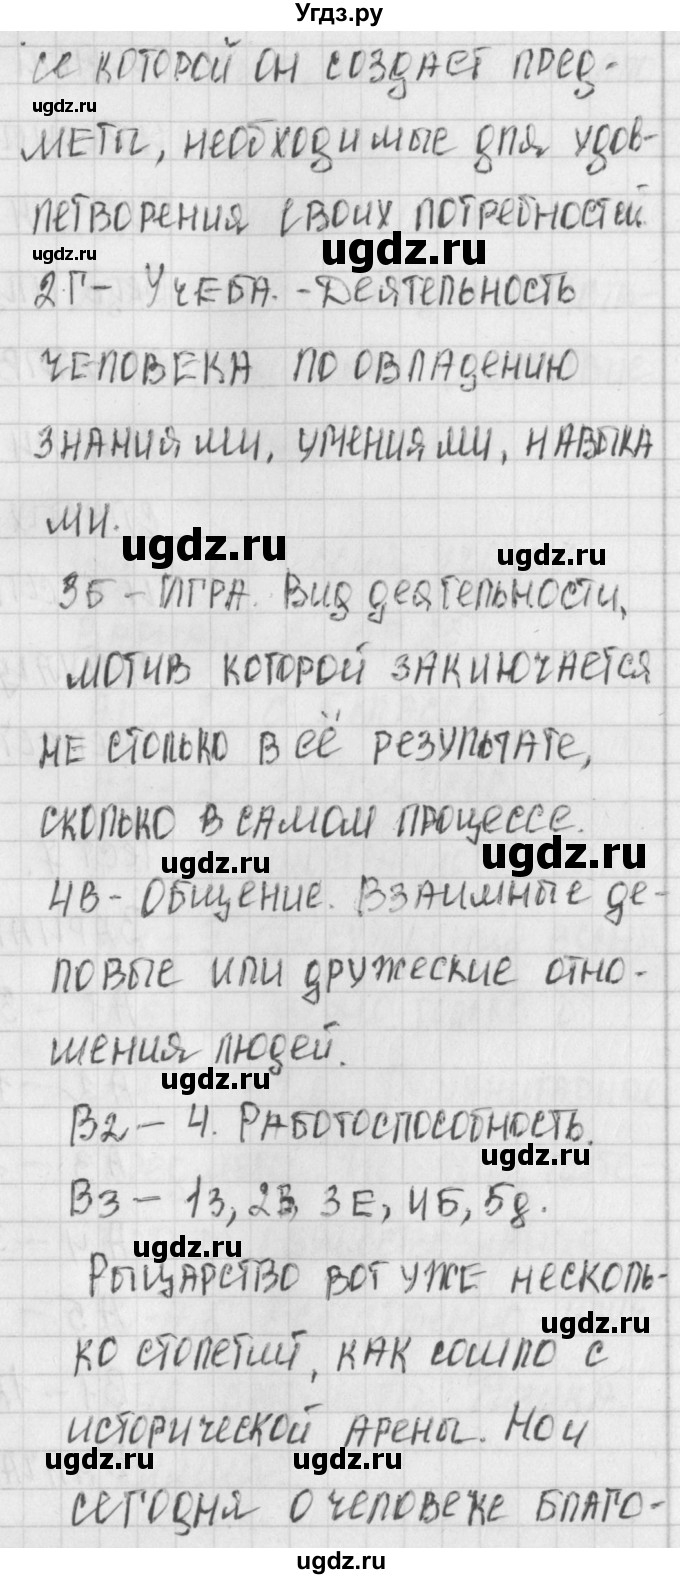 Угдз.ру
се которой он создает пред-
ugdz.ru
меты, необходимые для удов-
летворения своих потребностей
ugdz.ru
ugdz.ru
2Г- Учеба. - Деятельность
человека по овладению
знаниями, умениями, навыка
ми.
ugdz.ru
ugdz.ru
3Б - Игра. Вид деятельности,
мотив которой заключается
не столько в её результате,
сколько в самом процессе.
ugdz.ru
ugdz.ru
4В - Общение. Взаимные де-
ловые или дружеские отно-
шения людей.
ugdz.ru
В2 - 4. Работоспособность.
ugdz.ru
В3 - 1З, 2В, 3Е, 4Б, 5д.
ugdz.ru
Рыцарство вот уже несколь-
ugdz.ru
ко столетий, как сошло с
исторической арены. Но и
ugdz.ru
ugdz.ru
сегодня о человеке благо-
ugdz.ru